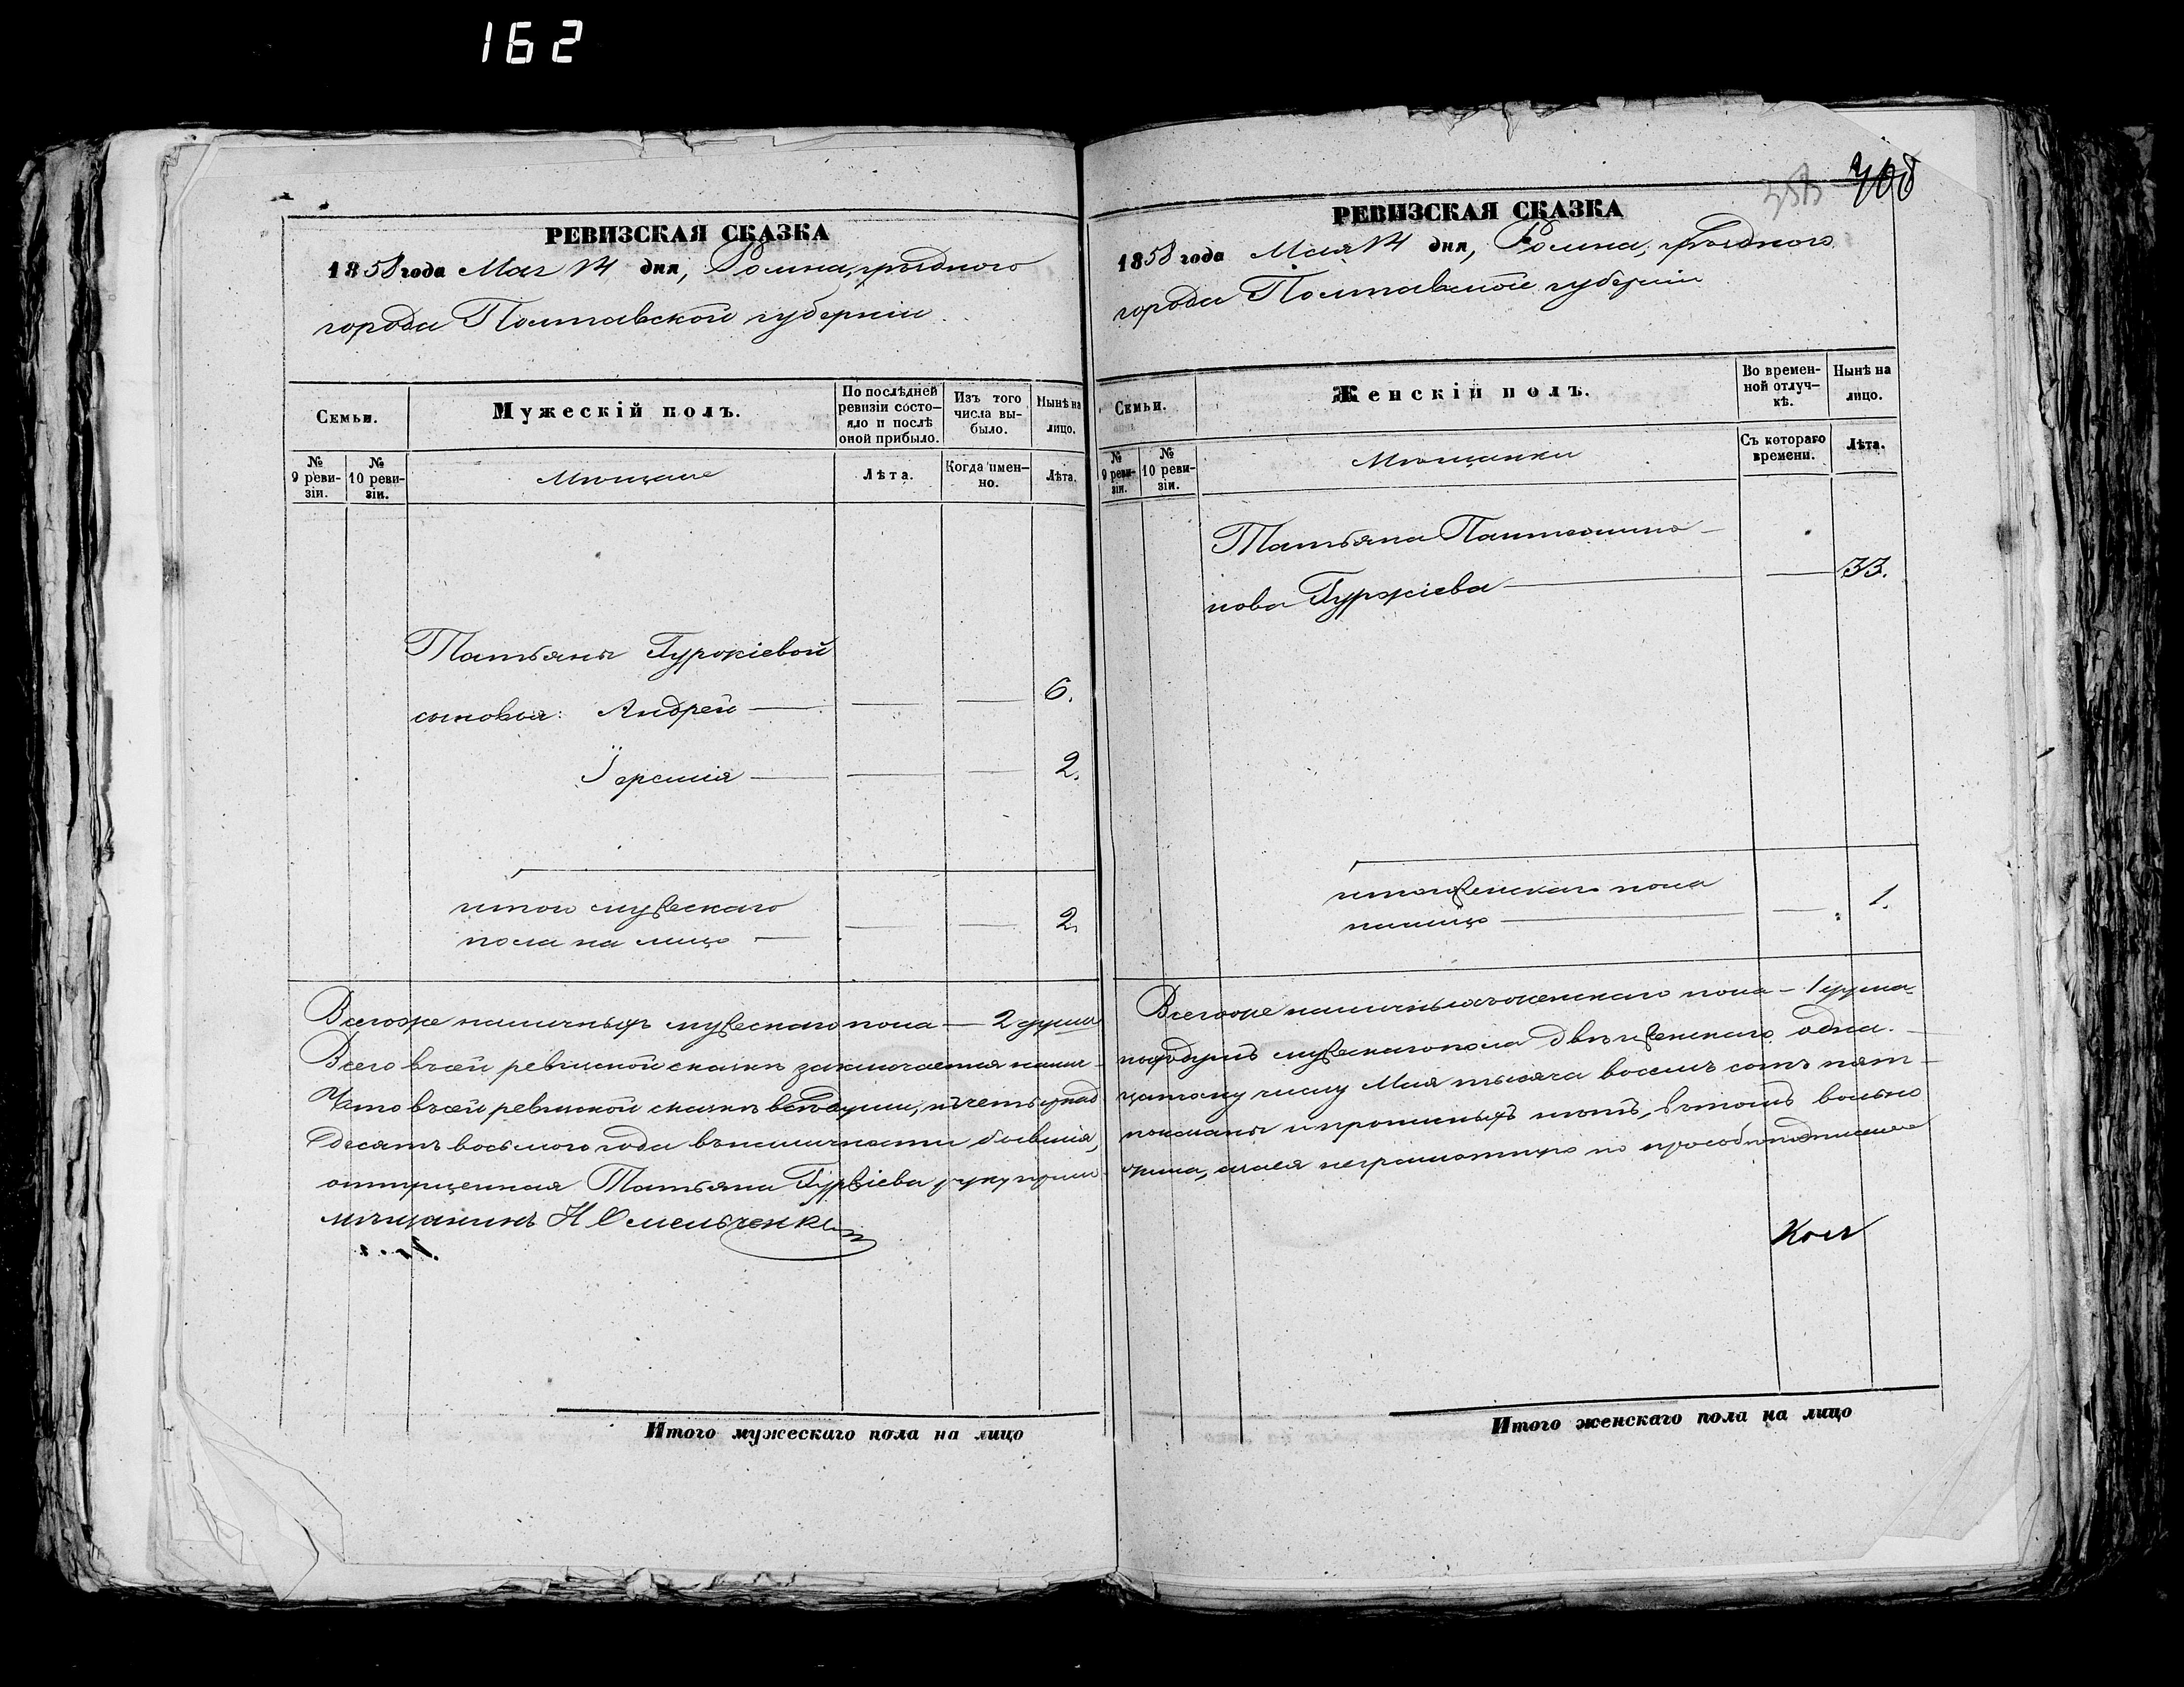 162
РЕВИЗСКАЯ СКАЗКА
1858 года Мая 14 дня, Ромна, уѣзднаго
города Полтавской губерніи
Семьи.
Мужескій полъ.
По послѣдней ревизіи состо-
яло и послѣ оной прибыло.
Изъ того числа вы-
было.
Нынѣ на лицо.
№ 9 реви-
зіи.
№ 10 реви-
зіи.
Мѣщане
Лѣта.
Когда имен-
но.
Лѣта.
Татьяны Гуржіевой
сыновья: Андрей — — — 6.
— — — 2.
итого мужескаго
пола на лицо — — — 2.
Всегоже наличныхъ мужескаго пола — 2 души
Всего в сей ревизской сказкѣ заключается налич-
Что в сей ревизской сказкѣ всѣ души, къ четырнад
десятъ восьмого года въ наличности бывшія,
отпущенная Татьяна Гуржіева,
мѣщанинъ Н Омельченко
Итого мужескаго пола на лицо
408
РЕВИЗСКАЯ СКАЗКА
1858 года Мая 14 дня, Ромна, уѣзднаго
города Полтавской губерніи
Семьи.
Женскій полъ.
Во времен-
ной отлуч-
кѣ.
Нынѣ на лицо.
№ 9 реви-
зіи.
№ 10 реви-
зіи.
Мѣщанки
Съ котораго времени.
Лѣта.
Татьяна Пантелимо-
нова Гуржіева — — 33.
итого женскаго пола
налицо — — 1.
Всегоже наличныхъ женскаго пола — 1 душа
мужескаго пола двѣ и женскаго одна.
цатому числу Мая тысяча восемь сотъ пят-
показаны и прописныхъ нѣтъ, в томъ вольно
неграмотную по просьбѣ подписался
Итого женскаго пола на лицо